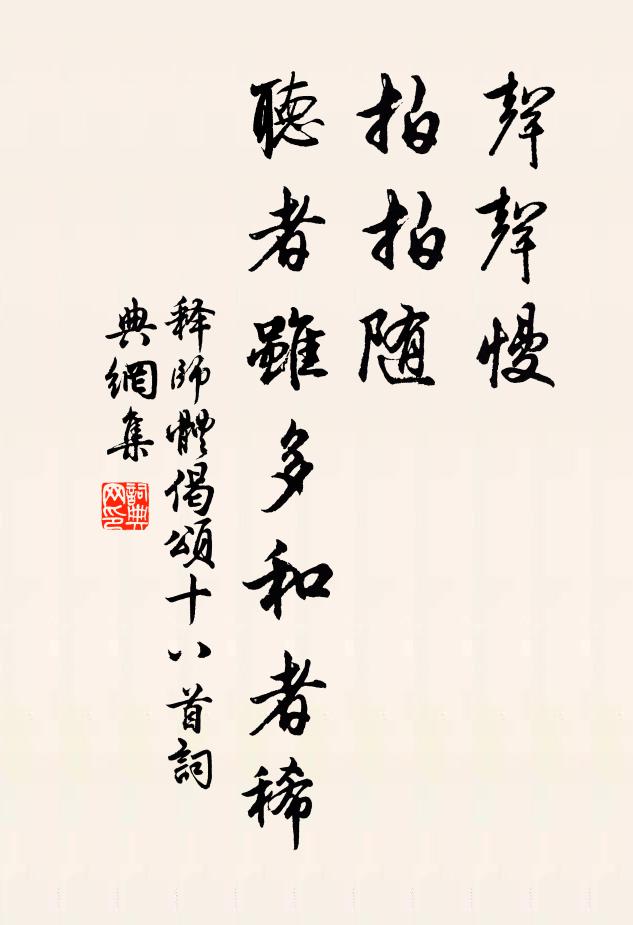 聲聲慢
拍拍随
聽者雖多和者稀
释師體偈頌十八首詞
典網集
詞典网印